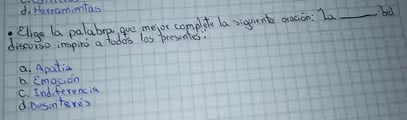 d. Herramientas
• Elige la palabra que mejor complete la siguiente oración: "La ____ del
discurso inspiró a todos los presentes".
a. Apatía
b. Emoción
c. Indiferencia
d. Desinterés